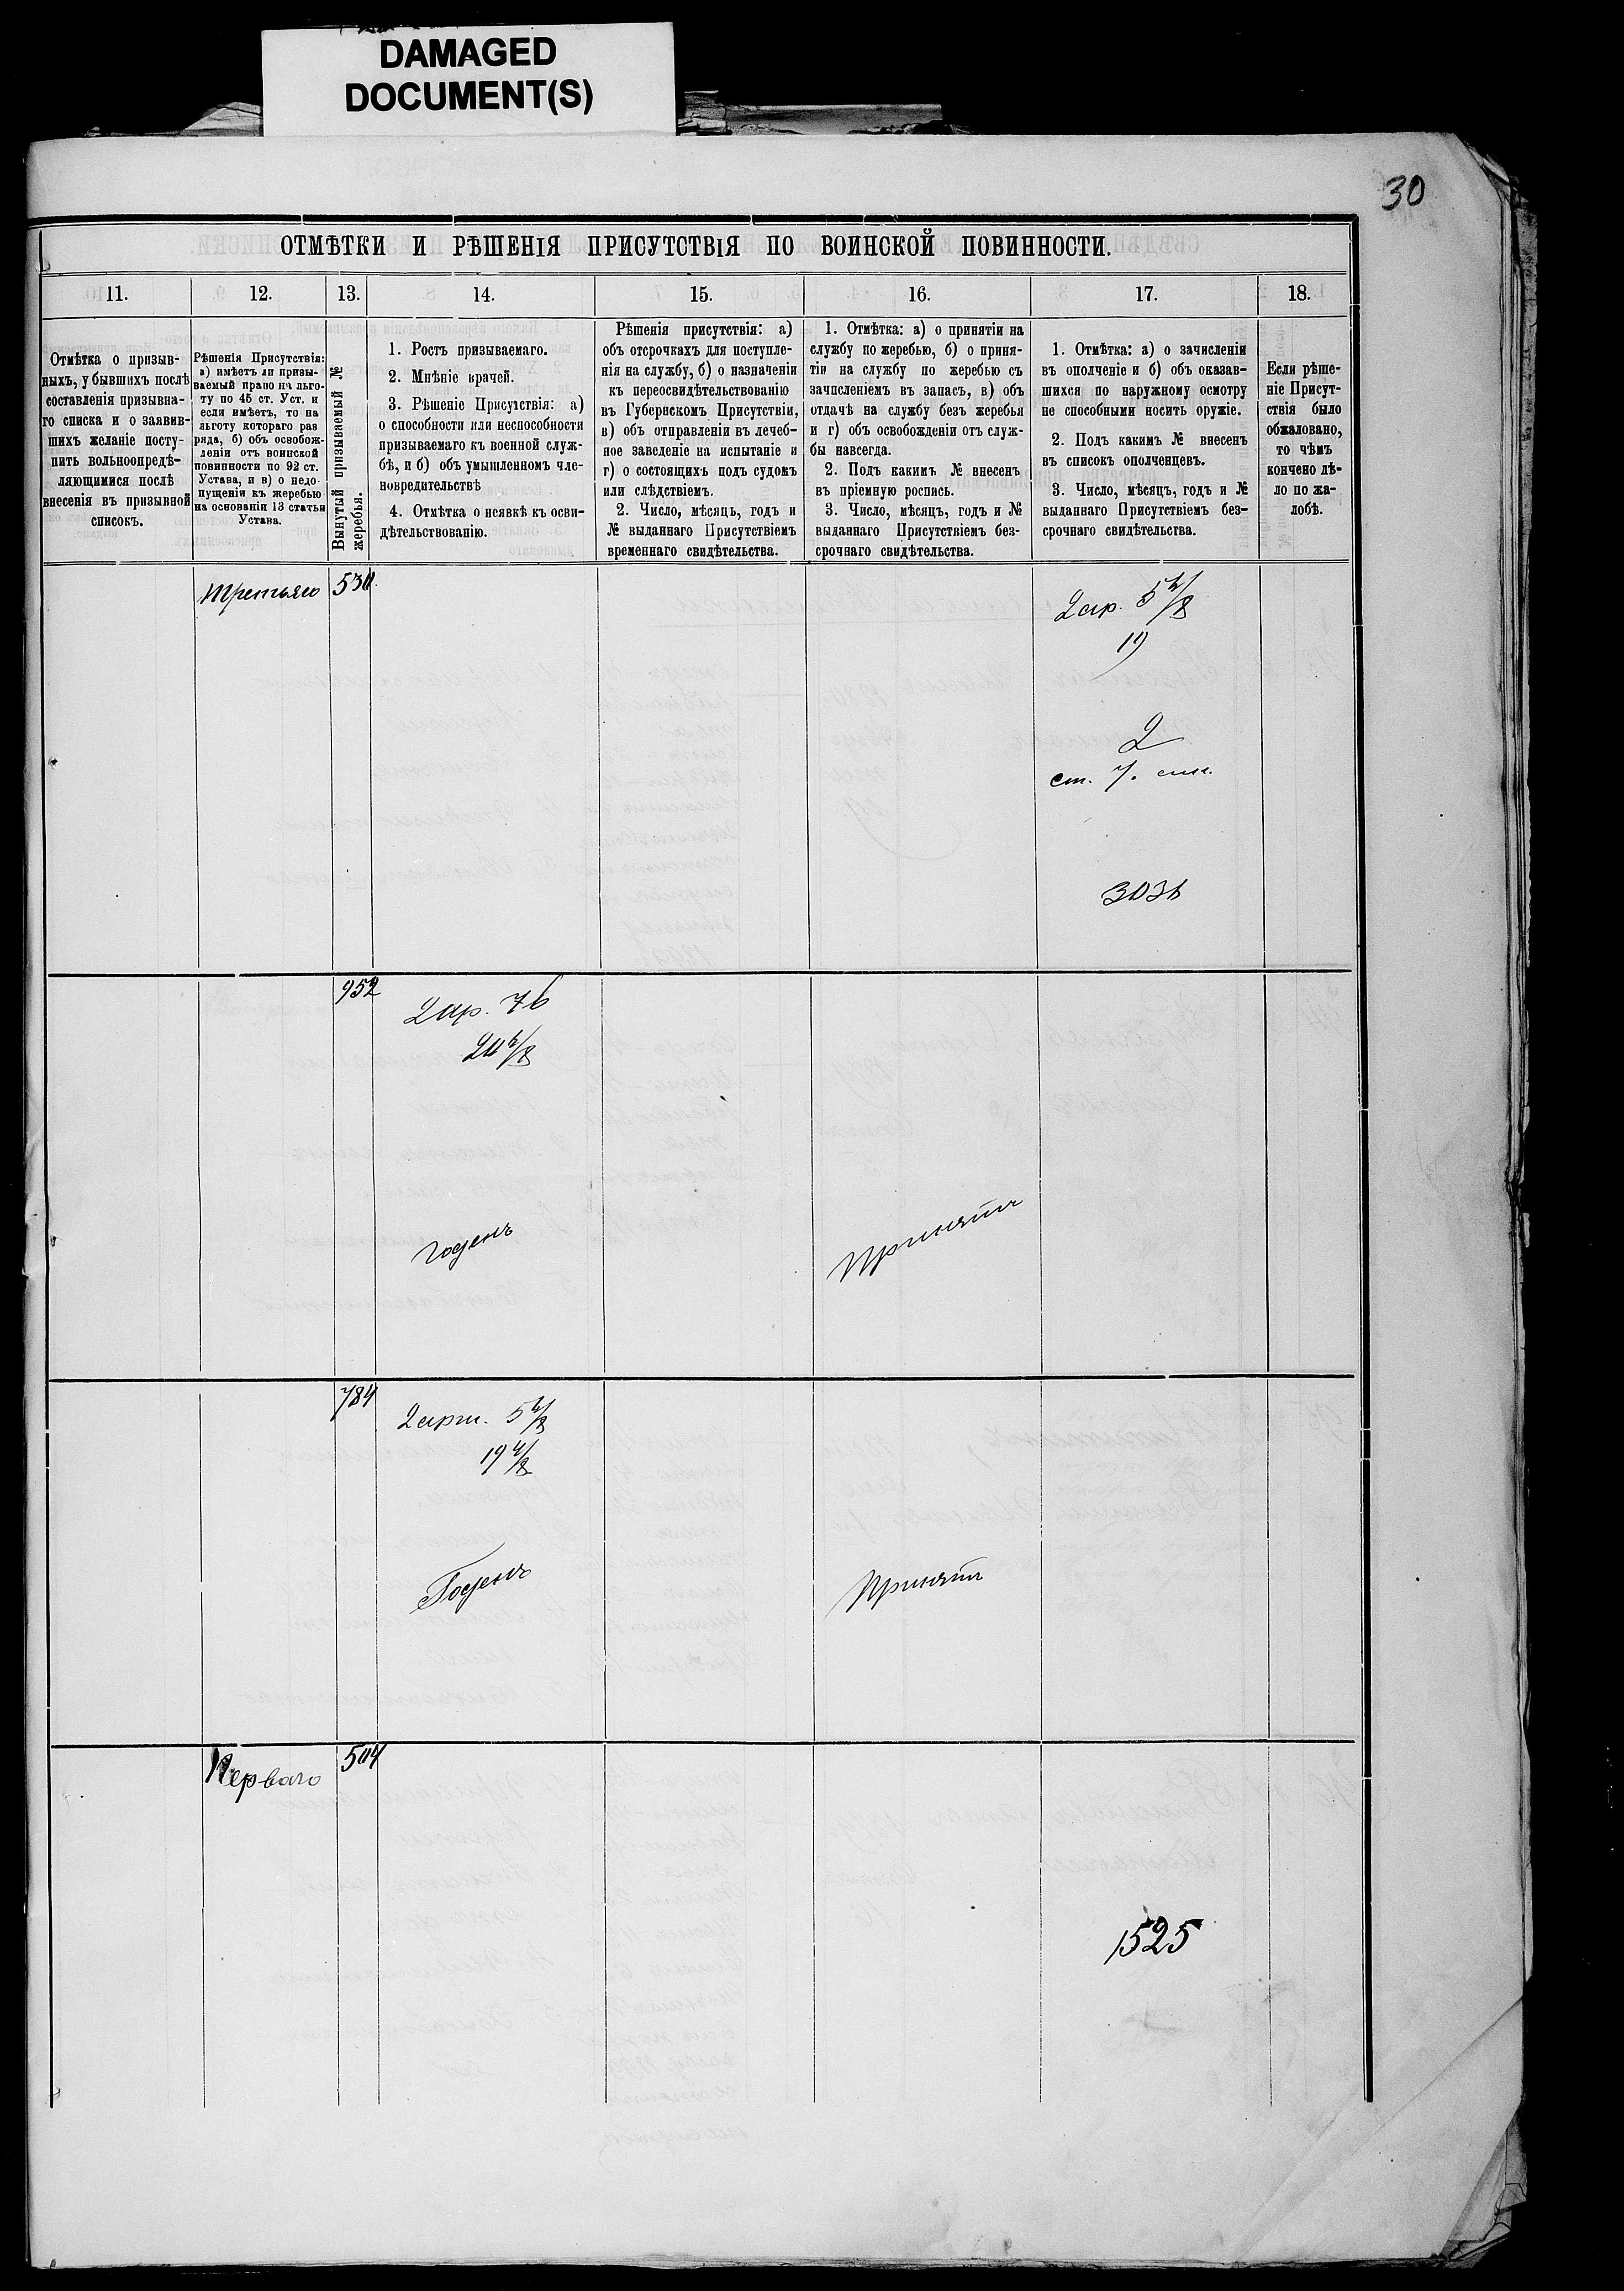 DAMAGED
DOCUMENT(S)
30
ОТМѢТКИ И РѢШЕНІЯ ПРИСУТСТВІЯ ПО ВОИНСКОЙ ПОВИННОСТИ.
11.
12.
13.
14.
15.
16.
17.
18.
Отмѣтка о призыв-
ныхъ, у бывшихъ послѣ
составленія призывна-
го списка и о заявив-
шихъ желаніе посту-
пить вольноопредѣ-
ляющимися послѣ
внесенія въ призывной
списокъ.
Рѣшенія Присутствія:
а) имѣетъ ли призы-
ваемый право на льго-
ту по 45 ст. Уст. и
если имѣетъ, то на
льготу котораго раз
ряда, б) объ освобож-
деніи отъ воинской
повинности по 92 ст.
Устава, и в) о недо-
пущеніи къ жеребью
на основаніи 13 статьи
Устава.
Вынутый призываемый №
жеребья.
1. Ростъ призываемаго.
2. Мнѣніе врачей.
3. Рѣшеніе Присутствія: а)
о способности или неспособности
призываемаго къ военной служ-
бѣ, и б) объ умышленномъ чле-
новредительствѣ
4. Отмѣтка о неявкѣ къ осви-
дѣтельствованію.
Рѣшенія присутствія: а)
объ отсрочкахъ для поступле-
нія на службу, б) о назначеніи
къ переосвидѣтельствованію
въ Губернскомъ Присутствіи,
в) объ отправленіи въ лечеб-
ное заведеніе на испытаніе и
г) о состоящихъ подъ судомъ
или слѣдствіемъ.
2. Число, мѣсяцъ, годъ и
№ выданнаго Присутствіемъ
временнаго свидѣтельства.
1. Отмѣтка: а) о принятіи на
службу по жеребью, б) о приня-
тіи на службу по жеребью съ
зачисленіемъ въ запасъ, в) объ
отдачѣ на службу безъ жеребья
и г) объ освобожденіи отъ служ-
бы навсегда.
2. Подъ какимъ № внесенъ
въ пріемную роспись.
3. Число, мѣсяцъ, годъ и №
выданнаго Присутствіемъ без-
срочнаго свидѣтельства.
1. Отмѣтка: а) о зачисленіи
въ ополченіе и б) объ оказав-
шихся по наружному осмотру
не способными носить оружіе.
2. Подъ какимъ № внесенъ
въ списокъ ополченцевъ.
3. Число, мѣсяцъ, годъ и №
выданнаго Присутствіемъ без-
срочнаго свидѣтельства.
Если рѣше-
ніе Присут-
ствія было
обжаловано,
то чѣмъ
кончено дѣ-
ло по жа-
лобѣ.
третьяго
530
2 ар. 5 4/8
19
2
ст. 7.
952
2 ар. 7
годенъ
принятъ
784
2 арш. 5 4/8
19 4/8
Годенъ
Принятъ
Перваго
504
1525